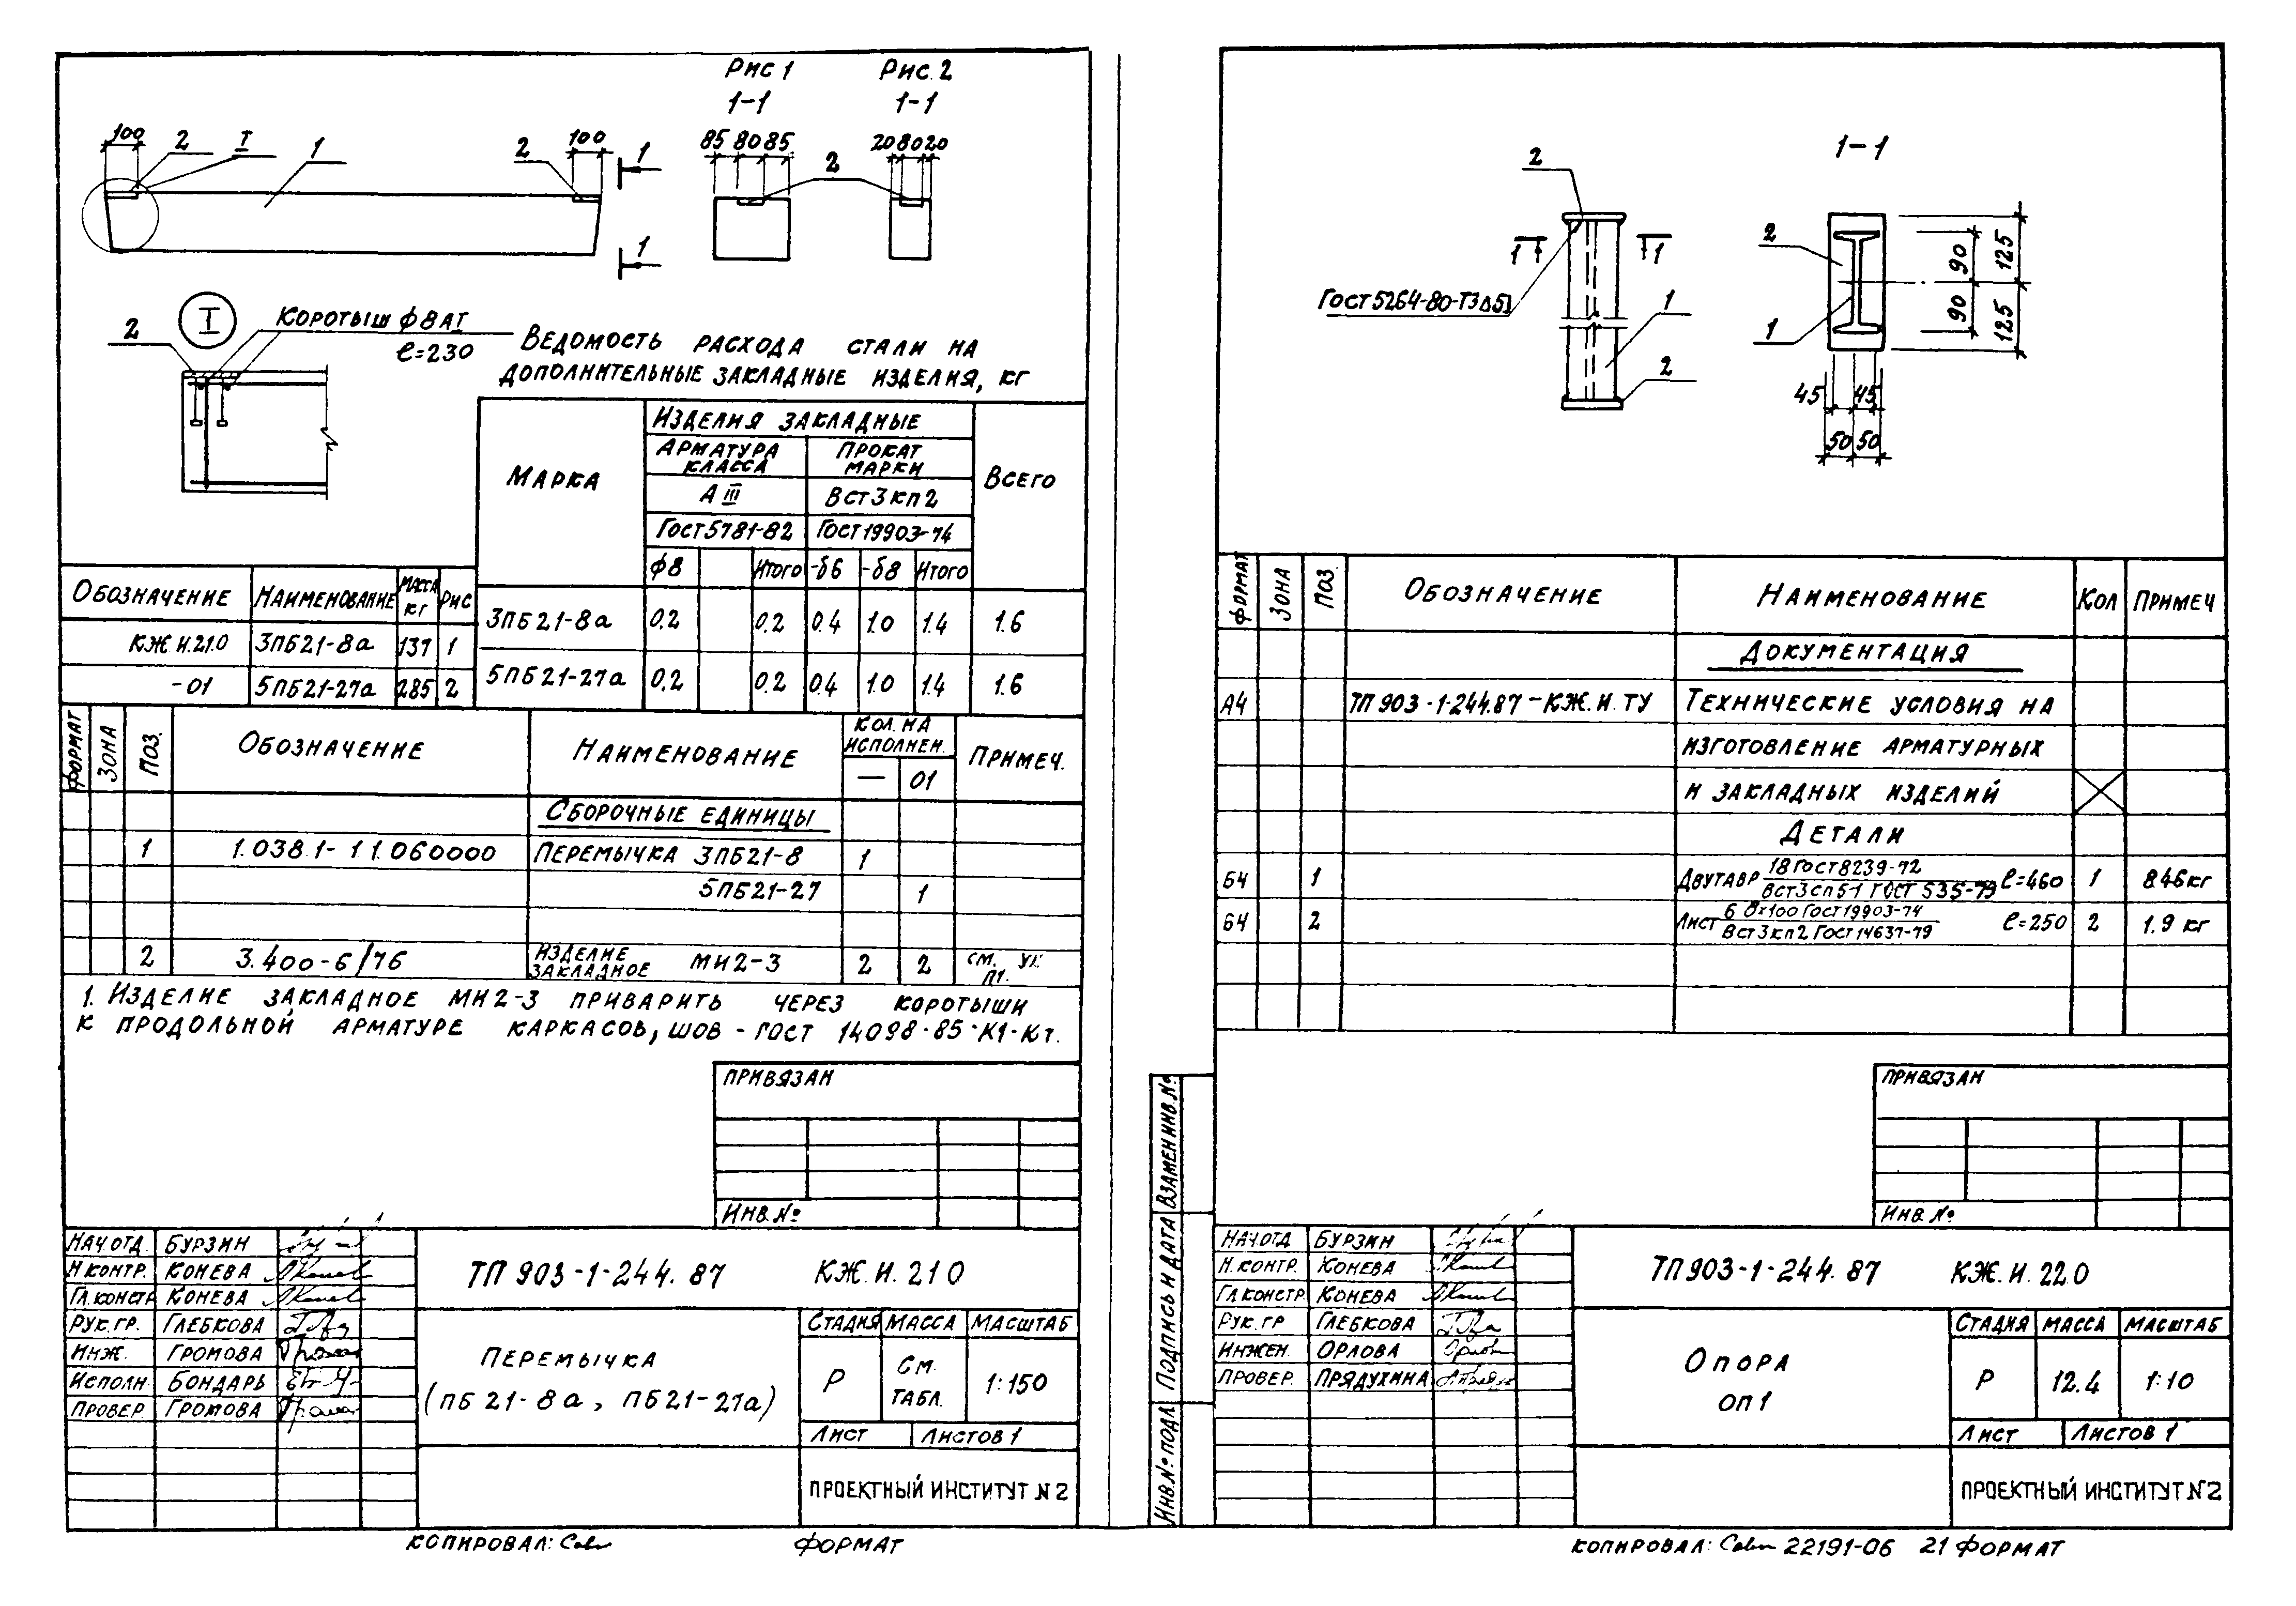 Рис 1 Рис. 2
1-1 1-1
100 2 I 1 2 100 1
85 80 85 2 20 80 20
1
2 I Коротыш ф8АI
ℓ=230
Ведомость расхода стали на
дополнительные закладные изделия, кг
Марка Изделия закладные Всего
Арматура класса Прокат марки
А III Вст3кп2
Гост 5781-82 Гост 19903-74
ф8 Итого -δ6 -δ8 Итого
3ПБ21-8а 0,2 0.2 0.4 1.0 1.4 1.6
5ПБ21-27а 0,2 0.2 0.4 1.0 1.4 1.6
Обозначение Наименование Масса кг Рис
КЖ.И.21.0 3ПБ21-8а 137 1
-01 5ПБ21-27а 285 2
Формат Зона Поз. Обозначение Наименование Кол. на исполнен. Примеч.
— 01
Сборочные единицы
1 1.038.1-1 1.060000 Перемычка 3ПБ21-8 1
5ПБ21-27 1
2 3.400-6/76 Изделие закладное МИ2-3 2 2 см. ук. п1.
1. Изделие закладное МИ2-3 приварить через коротыши
к продольной арматуре каркасов, шов - ГОСТ 14098-85-К1-Кт.
Привязан
Инв.№
Нач.отд. Бурзин
Н контр. Конева
Гл.констр Конева
Рук.гр. Глебкова
Инж. Громова
Исполн. Бондарь
Провер. Громова
ТП 903-1-244.87 КЖ.И.210
Перемычка
(ПБ 21-8а, ПБ21-27а)
Стадия Масса Масштаб
Р см. табл. 1:150
Лист Листов 1
Проектный институт N2
Копировал: Формат
2 1-1
1 1 2
Гост 5264-80-Т3△5 1 1
2
90 90 125 125
45 45
50 50
Формат Зона Поз. Обозначение Наименование Кол Примеч
Документация
А4 ТП 903-1-244.87-КЖ.И.ТУ Технические условия на
изготовление арматурных
и закладных изделий
Детали
Б4 1 Двутавр 18 Гост 8239-72 / Вст3сп5-1 ГОСТ 535-79 ℓ=460 1 8.46кг
Б4 2 Лист Гост 19903-74 / Вст3кп2 Гост 14637-79 ℓ=250 2 1.9 кг
Привязан
Инв.№
Взамен инв.№
Подпись и дата
Инв.№ подл
Нач.отд Бурзин
Н.контр. Конева
Гл.констр Конева
Рук.гр Глебкова
Инжен. Орлова
Провер. Прядухина
ТП903-1-244.87 КЖ.И.22.0
Опора
ОП1
Стадия Масса Масштаб
Р 12.4 1:10
Лист Листов 1
Проектный институт N2
Копировал: 22191-06 21 Формат